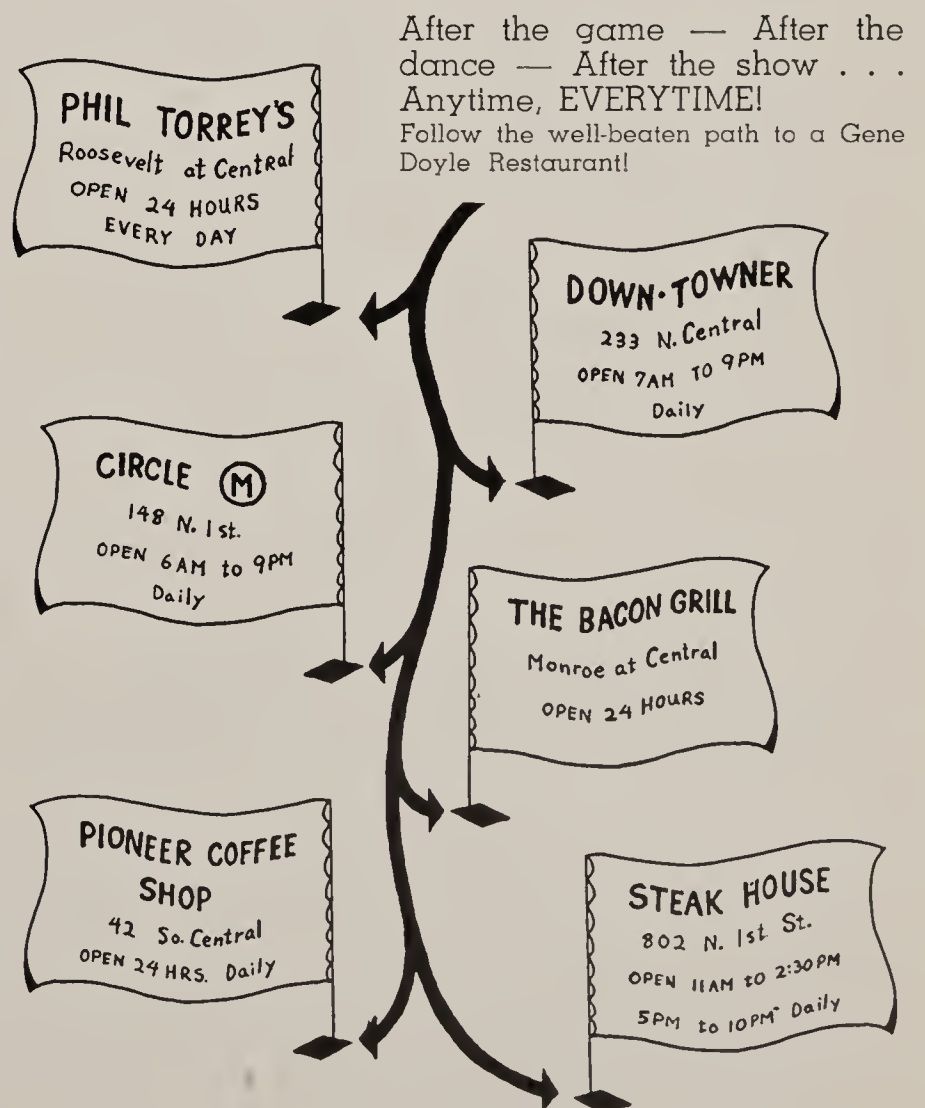 After the game — After the
dance — After the show . . .
Anytime, EVERYTIME!
Follow the well-beaten path to a Gene
Doyle Restaurant!
PHIL TORREY'S
Roosevelt at Central
OPEN 24 HOURS
EVERY DAY
DOWN·TOWNER
233 N. Central
OPEN 7AM TO 9PM
Daily
CIRCLE M
148 N. 1st.
OPEN 6AM to 9PM
Daily
THE BACON GRILL
Monroe at Central
OPEN 24 HOURS
PIONEER COFFEE
SHOP
42 So. Central
OPEN 24 HRS. Daily
STEAK HOUSE
802 N. 1st St.
OPEN 11AM to 2:30PM
5PM to 10PM Daily